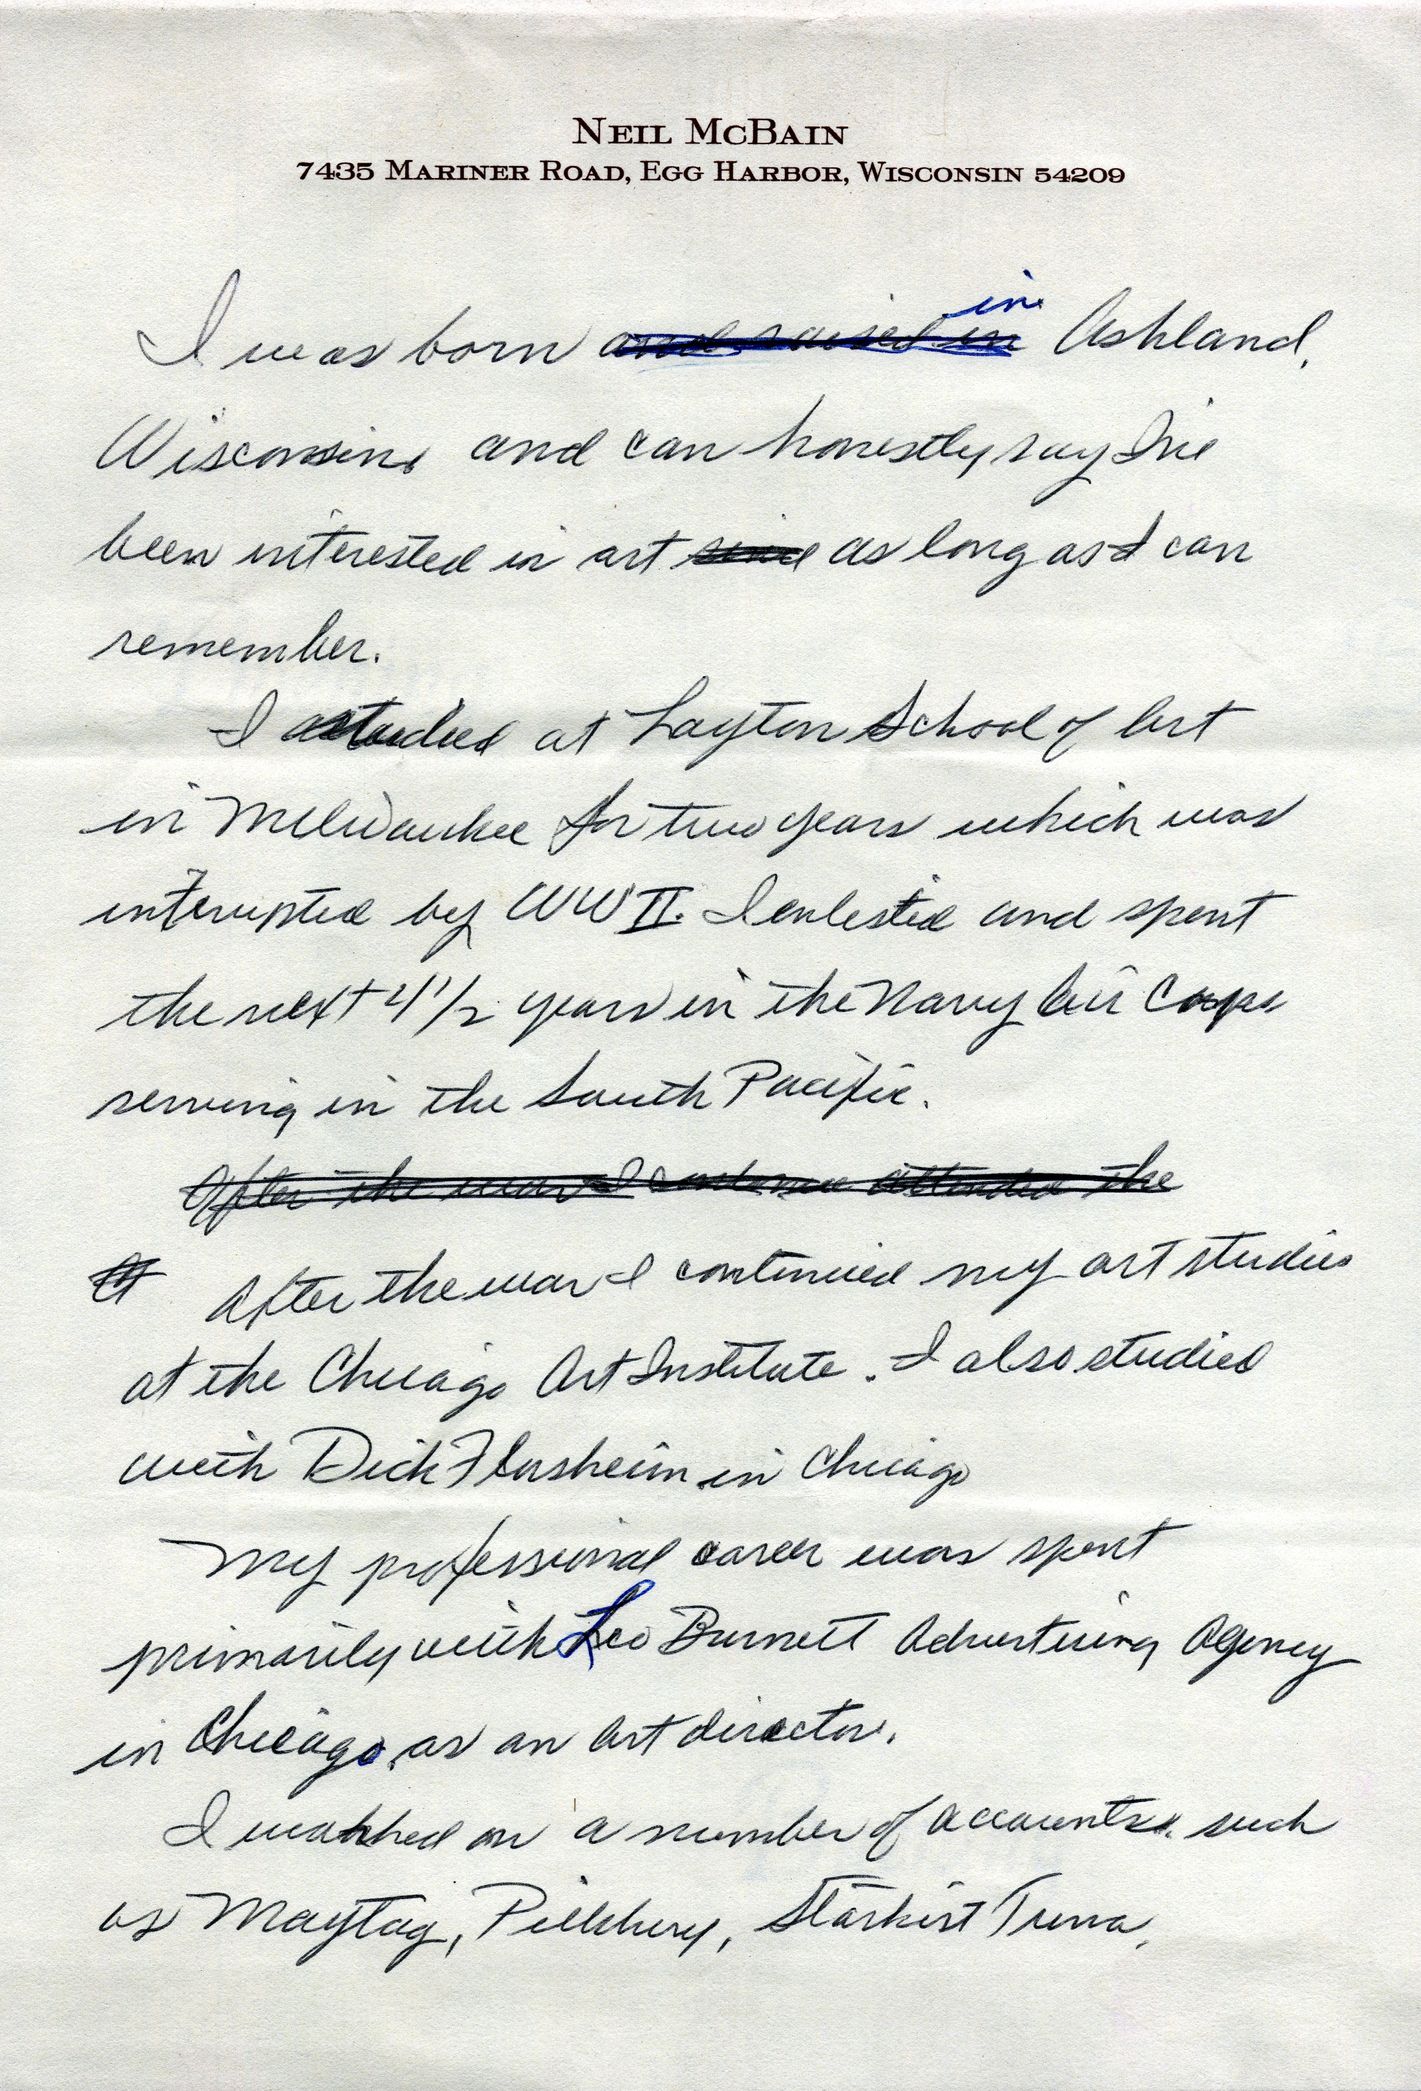 NEIL MCBAIN
7435 MARINER ROAD, EGG HARBOR, WISCONSIN 54209
in
I was born and raised in Ashland,
Wisconsin, and can honestly say I've
been interested in art since as long as I can
remember.
I studied at Layton School of Art
in Milwaukee for two years which was
interupted by WW II. I enlisted and spent
the next 4 1/2 years in the Navy Air Corps
serving in the South Pacific.
After the war I attended the
After the war I continued my art studies
at the Chicago Art Institute. I also studied
with Dick Florsheim in Chicago
My professional career was spent
primarily with Leo Burnett Advertising Agency
in Chicago, as an Art director.
I worked on a number of accounts such
as Maytag, Pillsbury, Starkist Tuna,